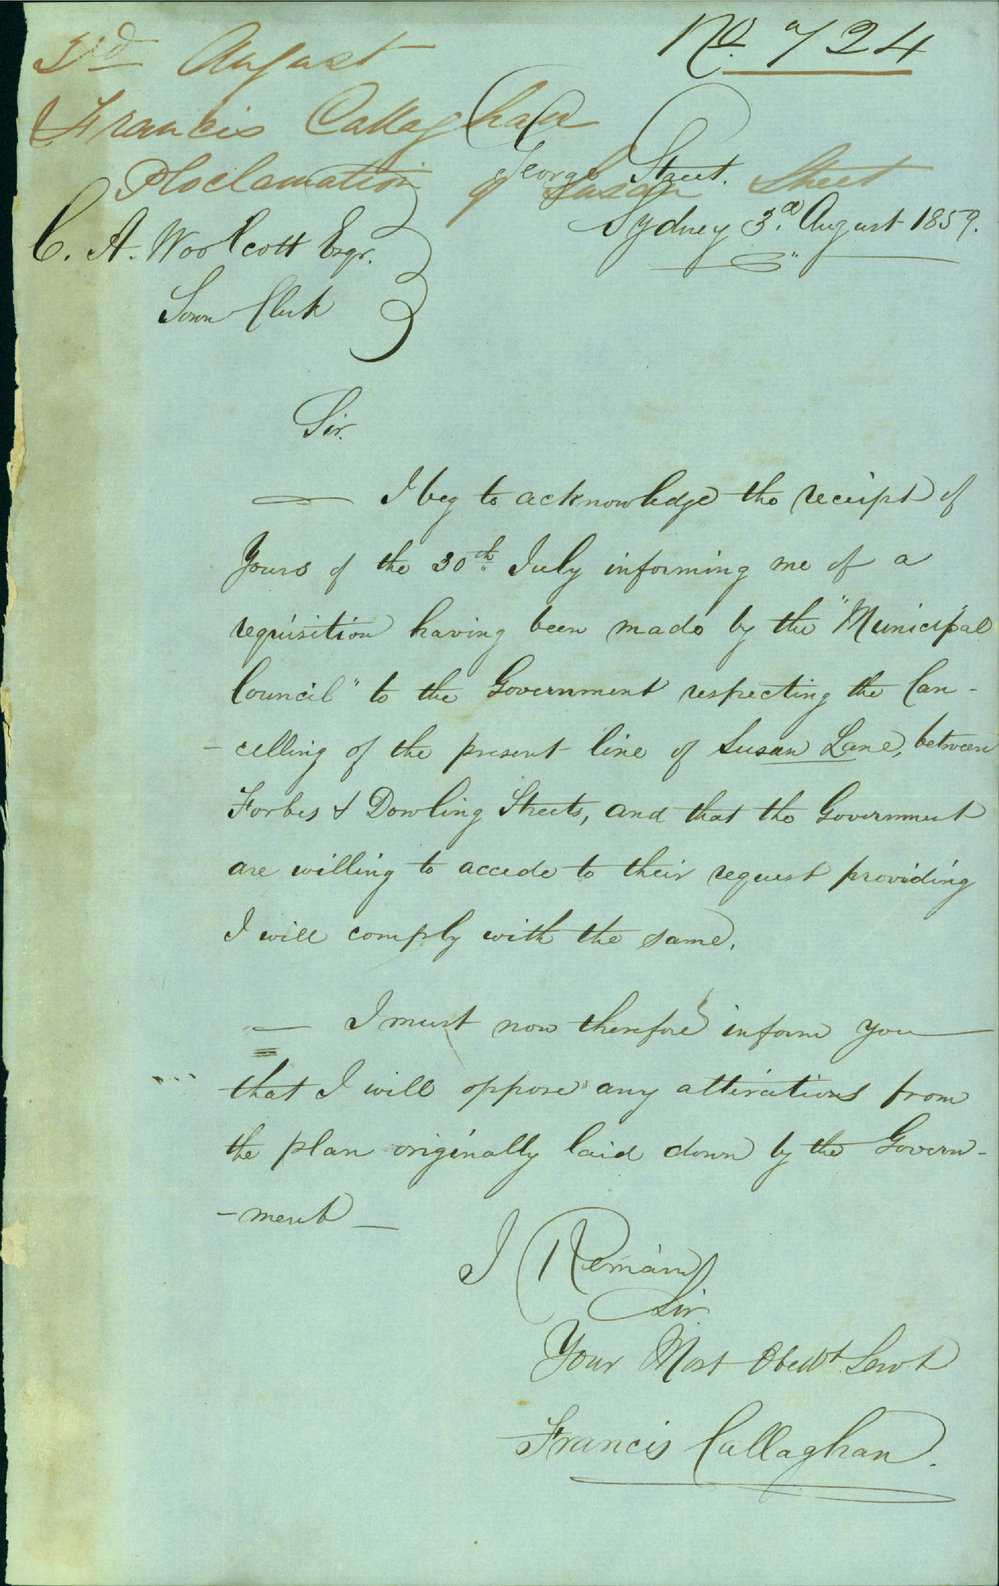 No. 724
3rd August
Francis Callaghan
Proclamation of Susan Street
George Street.
Sydney 3d. August 1859.
C. A. Woolcott Esqr.
Town Clerk
Sir.
I beg to acknowledge the receipt of
Yours of the 30th July informing me of a
requisition having been made by the "Municipal
Council" to the Government respecting the Can-
-celling of the present line of Susan Lane, between
Forbes & Dowling Streets, and that the Government
are willing to accede to their request providing
I will comply with the same.
I must now therefore inform you
that I will oppose any altirations from
the plan originally laid down by the Govern-
-ment
I Remain
Sir
Your Most Obedt. Servt
Francis Callaghan.